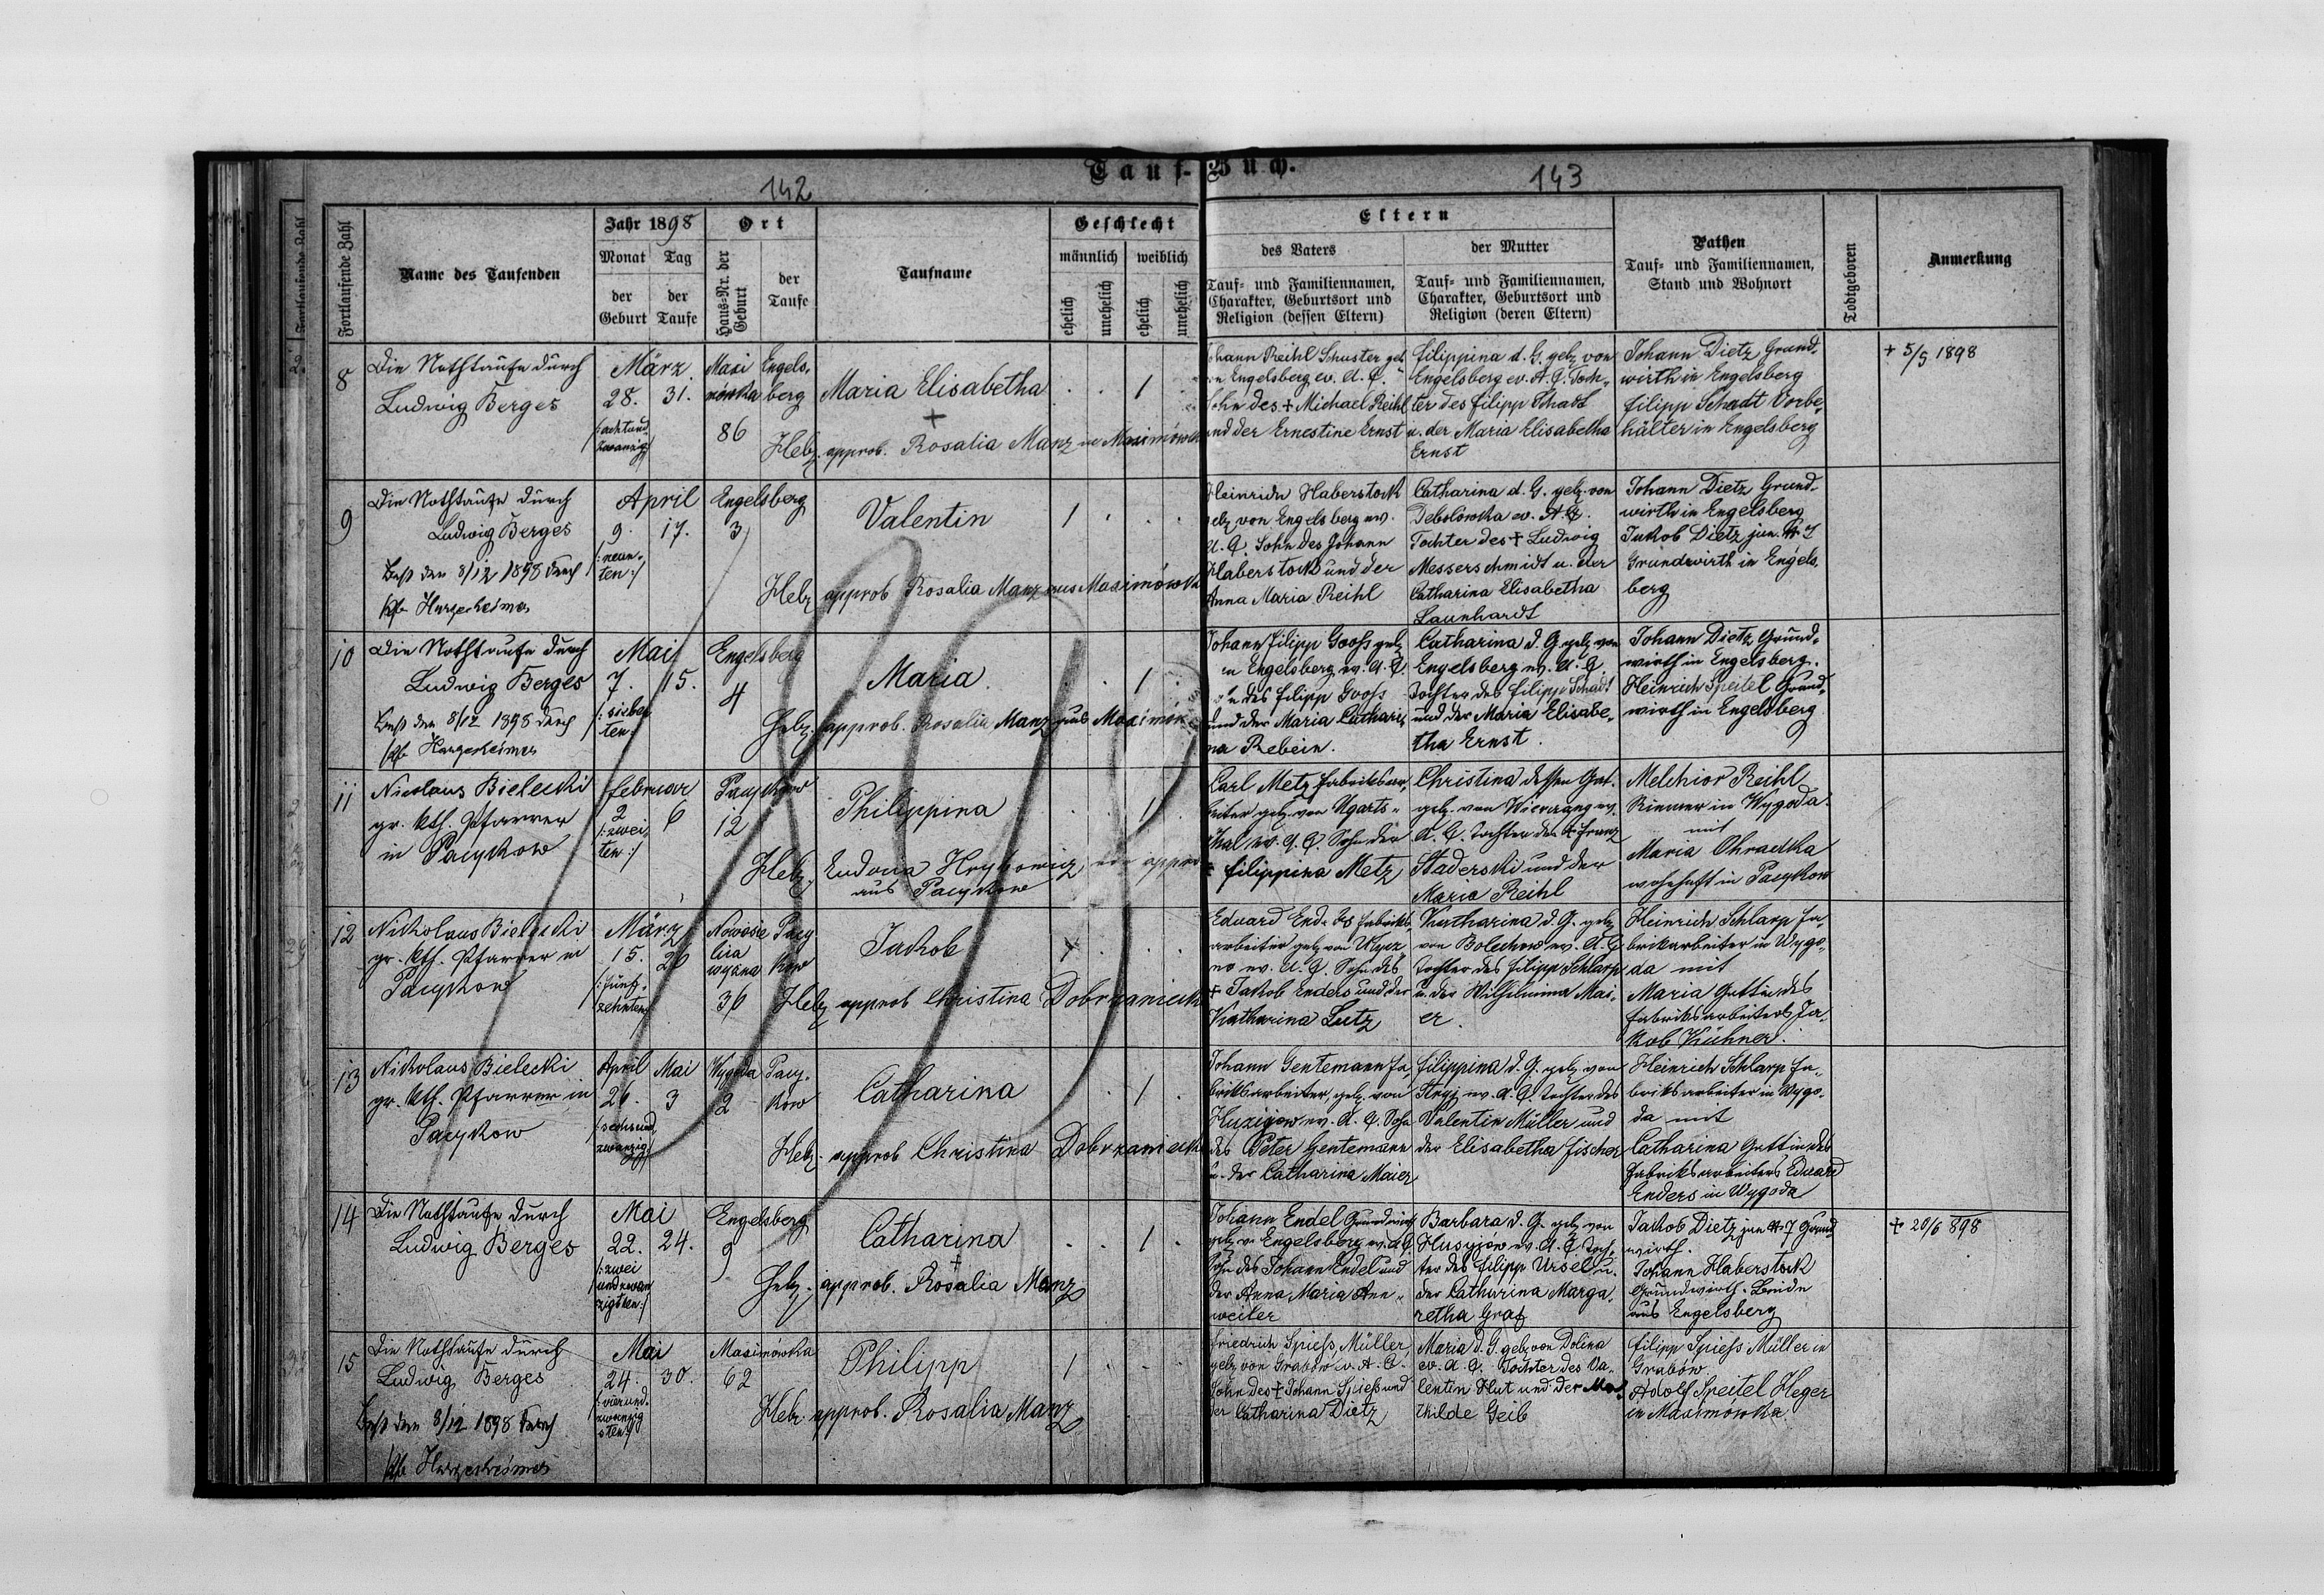 Tauf-Buch.
142
143
Fortlaufende Zahl
Name des Taufenden
Jahr 1898
Monat Tag
der Geburt
der Taufe
Ort
Haus-Nr. der Geburt
der Taufe
Taufname
Geschlecht
männlich weiblich
ehelich unehelich ehelich unehelich
Eltern
des Vaters
Tauf- und Familiennamen,
Charakter, Geburtsort und
Religion (dessen Eltern)
der Mutter
Tauf- und Familiennamen,
Charakter, Geburtsort und
Religion (deren Eltern)
Pathen
Tauf- und Familiennamen,
Stand und Wohnort
Todtgeboren
Anmerkung
8
Die Nothtaufe durch
Ludwig Berges
März
28. 31.
/:achtund
zwanzig/
Maxi
mówka
86
Engels.
berg
Maria Elisabetha
+
1
Hebz. approb. Rosalia Manz in Maximówka
Johann Reihl Schuster geb.
von Engelsberg ev. A. C.
Sohn des + Michael Reihl
und der Ernestine Ernst
Filippina d. G. geb. von
Engelsberg ev. A. C. Toch-
ter des Filipp Schadt
u. der Maria Elisabetha
Ernst
Johann Dietz Grund-
wirth in Engelsberg
Filipp Schadt Vorbe-
hälter in Engelsberg
+ 5/5 1898
9
Die Nothtaufe durch
Ludwig Berges
Best den 8/12 1898 durch
Pfr Hargesheimer
April
9. 17.
/:neun-
ten:/
Engelsberg
3
Valentin
1
Hebz approb Rosalia Manz aus Maximówka
Heinrich Haberstock
geb von Engelsberg ev.
A. C. Sohn des Johann
Haberstock und der
Anna Maria Reihl
Catharina d. G. geb. von
Debolówka ev. A. C.
Tochter des + Ludwig
Messerschmidt u. der
Catharina Elisabetha
Launhardt
Johann Dietz Grund-
wirth in Engelsberg
Jakob Dietz jun. N 7
Grundwirth in Engels-
berg
10
Die Nothtaufe durch
Ludwig Berges
Best den 8/12 1898 durch
Pfr Hargesheimer
Mai
7. 15.
/:sieben
ten:/
Engelsberg
4
Maria
1
Hebz. approb. Rosalia Manz aus Maximów
Johann Filipp Gooss geb
in Engelsberg ev. A. C.
des Filipp Gooss
und der Maria Cathari-
na Rebein.
Catharina d. G. geb. von
Engelsberg ev. A. C.
Tochter des Filipp Schadt
und der Maria Elisabe-
tha Ernst.
Johann Dietz Grund-
wirth in Engelsberg.
Heinrich Speitel Grund-
wirth in Engelsberg
11
Nicolaus Bielecki
gr. kth. Pfarrer
in Pacykow
Februar
2 6
/:zwei-
ten:/
Pacykow
12
Philippina
1
Hebz. Eudocia Hrykowicz non approb
aus Pacykow
Carl Metz Fabriksar-
beiter geb. von Ugarts-
thal ev. A. C. Sohn der
Filippina Metz
Christina dessen Gat.
geb. von Wierzang ev.
A. C. Tochter des + Franz
Staderski und der
Maria Reihl
Melchior Reihl
Riemer in Wygoda
mit
Maria Ohradka
wohnhaft in Pacykow
12
Nikolaus Bielecki
gr. kth. Pfarrer in
Pacykow
März
15. 26
/:fünf-
zehnten/
Nowosie
lica
wyżna
36
Pacy
kow
Jakob
Hebz approb Christina Dobrzaniecka
Eduard Enders Fabriks-
arbeiter geb von
ev. A. C. Sohn des
+ Jakob Enders und der
Katharina Lutz
Katharina d. G. geb
von Bolechow ev. A. C
Tochter des Filipp Schlarp
u. der Wilhelmina Mai-
er.
Heinrich Schlarp Fa-
brikarbeiter in Wygo-
da mit
Maria Gattin des
Fabriksarbeiters Ja-
kob Kühner.
13
Nikolaus Bielecki
gr. kth. Pfarrer in
Pacykow
April Mai
26. 3
/sechsund
zwanzig/
Wygoda
2
Pacy-
kow
Catharina
1
Hebz. approb Christina Dobrzaniecka
Johann Gentemann Fa
briksarbeiter, geb. von
ev. A. C. Sohn
des Peter Gentemann
u. der Catharina Maier
Filippina d. G. geb. von
Stryj ev. A. C. Tochter des
Valentin Müller und
der Elisabetha Fischer
Heinrich Schlarp Fa-
briksarbeiter in Wygo-
da mit
Catharina Gattin des
Fabriksarbeiters Eduard
Enders in Wygoda
14
Die Nothtaufe durch
Ludwig Berges
Mai
22. 24.
/:zwei
undzwan
zigsten:/
Engelsberg
9
Catharina
+
1
Hebz. approb. Rosalia Manz
Johann Endel Grundwirth
geb. v. Engelsberg ev. A. C.
Sohn des Johann Endel und
der Anna Maria Ann-
weiler
Barbara d. G. geb von
Husyjów ev. A. C. Toch-
ter des Filipp Ursel u.
der Catharina Marga-
retha Graf
Jakob Dietz jun N 7 Grund
wirth.
Johann Haberstock
Grundwirth. Beide
aus Engelsberg
+ 20/6 898
15
Die Nothtaufe durch
Ludwig Berges
Best den 8/12 1898 durch
Pfr Hargesheimer
Mai
24. 30.
/:vierund-
zwanzig
sten:/
Maximówka
62
Philipp
1
Hebz. approb. Rosalia Manz
Friedrich Spiess Müller
geb von Grabów ev. A. C.
Sohn des + Johann Spiess und
der Catharina Dietz
Maria d. G. geb von Dolina
ev. A. C. Tochter des Va-
lentin Hut und der Ma-
thilde Geib
Filipp Spiess Müller in
Grabów
Adolf Speitel Heger
in Maximówka